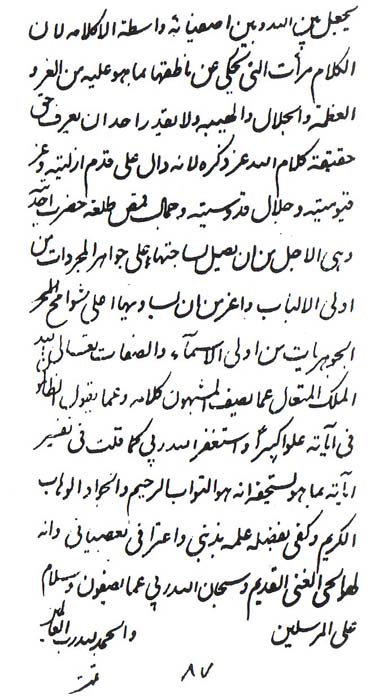 يجعل بين الله وبين اصفيائه واسطة الا كلامه لان
الكلام مرآت التي تحكى عن ناطقها بما هو عليه من العز و
العظمة والجلال والهيبه ولا يقدر احد ان يعرف حق
حقيقة كلام الله عز ذكره لانه دال على قدم ازليته وعز
قيوميته وجلال قدوسيته وجمال طلعة حضرت احديته
وهى الاجل من ان يصل لساحتها اعلى جواهر المجردات من
اولى الالباب واعز من ان اعلى شوامخ
الجوهريات من اولى الاسمآء والصفات تعالى الله
الملك المتعال عما يصف المشبهون كلامه وعما يقول الظالمون
فى آياته علوا كبيرا واستغفر الله ربى كما قلت فى تفسير
آياته بما هو يستحقه انه هو التواب الرحيم والجواد الوهاب
الكريم وكفى بفضله علمه بذنبى واعترافى بعصيانى وانه
لهو الحى الغنى القديم وسبحان الله ربى عما يصفون وسلام
على المرسلين والحمد لله رب العالمين
تمت
٨٧